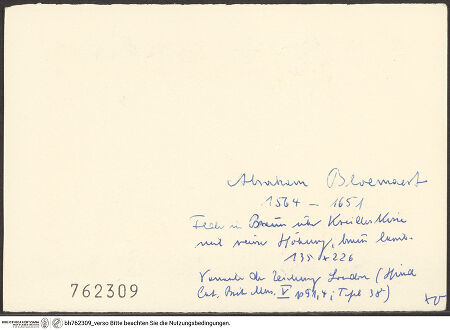 Abraham Bloemaert
1564 – 1651
Feder in Braun über
mit Höhung, braun
135 x 226
der Zeichnung London (Hind
Cat. Brit. Mus. V p 91, 4; Taf. 38)
762309
bh762309_verso Bitte beachten Sie die Nutzungsbedingungen.